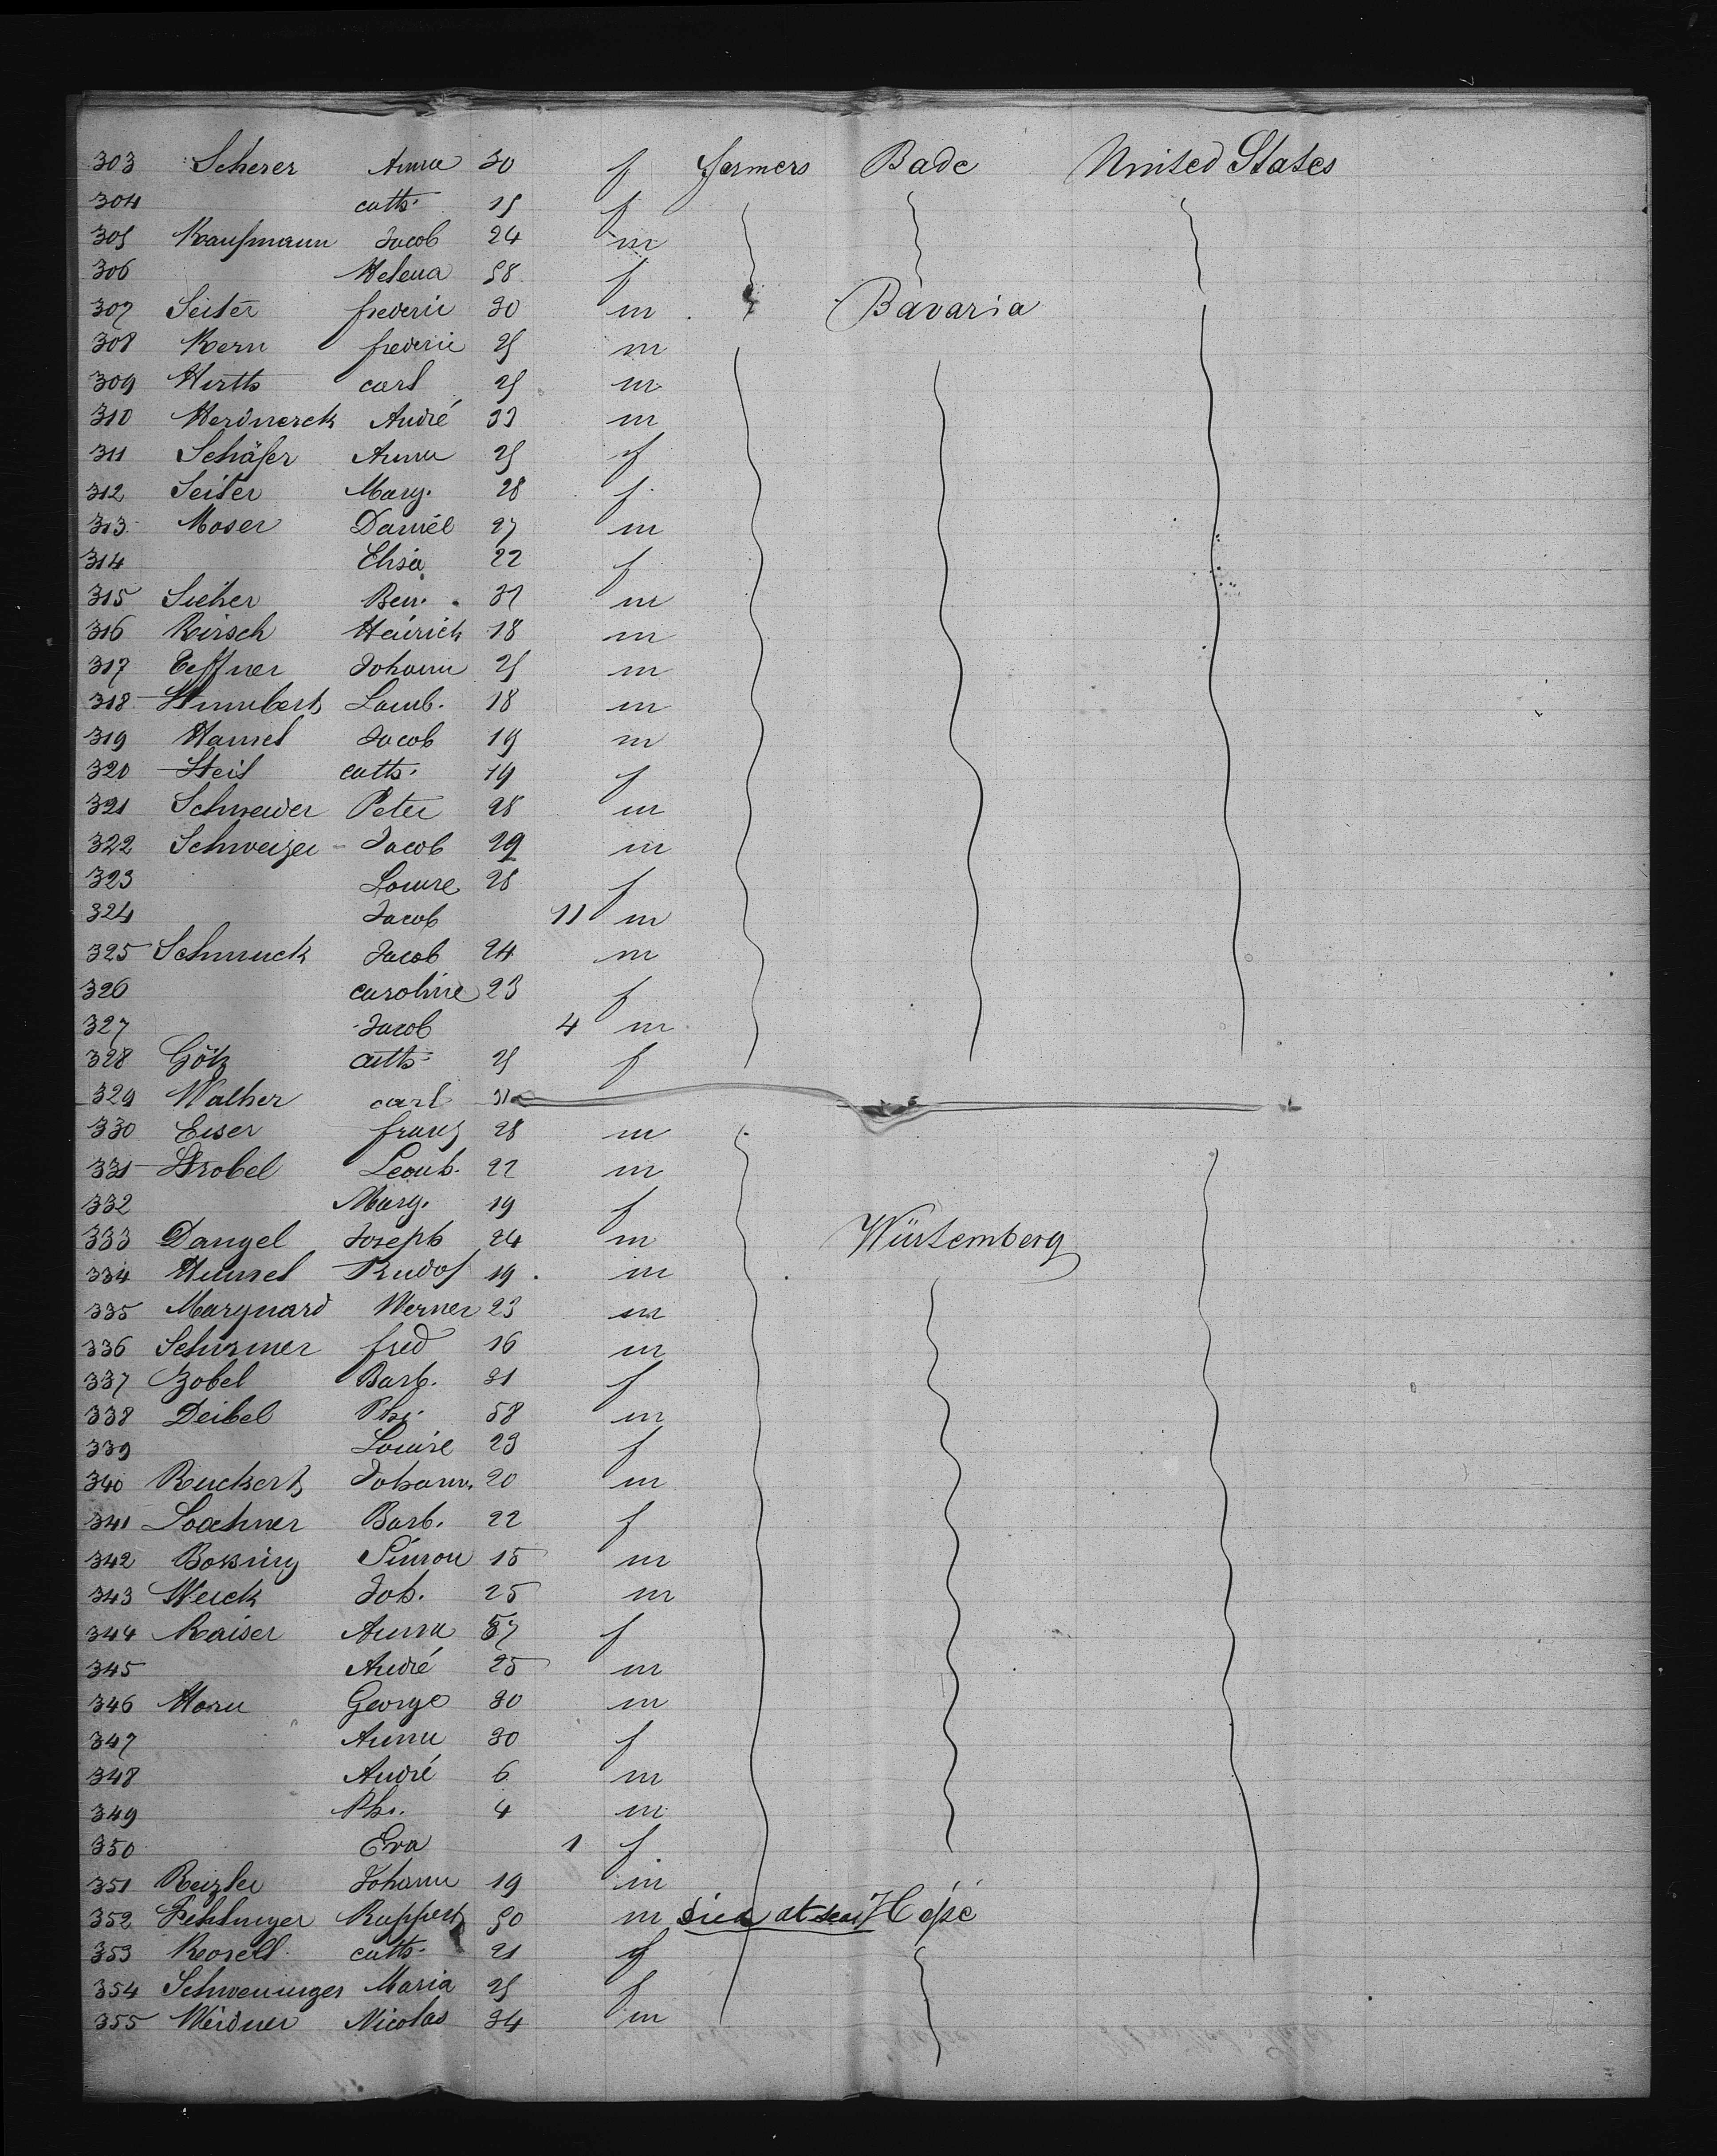 303 Scherer Anna 30 f farmers Bade United States
304 cath. 15 f
305 Kaufmann Jacob 24 m
306 Helena 58 f
307 Seiter frederic 30 m Bavaria
308 Kern frederic 25 m
309 Hirth carl 25 m
310 André 33 m
311 Schäfer Anna 25 f
312 Seiter Marg. 28 f
313 Moser Daniel 27 m
314 Elisa 22 f
315 Sieher Ben. 31 m
316 Kirsch Heinrich 18 m
317 Johann 25 m
318 Lamb. 18 m
319 Hamel Jacob 19 m
320 Steil cath. 19 f
321 Schneider Peter 28 m
322 Schweizer Jacob 29 m
323 Louise 28 f
324 Jacob 11 m
325 Schmuck Jacob 24 m
326 caroline 23 f
327 Jacob 4 m
328 Götz cath. 25 f
329 Walher carl
330 Eiser franz 28 m
331 Strobel Leonh. 22 m
332 Marg. 19 f
333 Dangel Joseph 24 m Würtemberg
334 Hummel Rudof 19 m
335 Marquard Werner 23 m
336 Schirmer fred 16 m
337 Zobel Barb. 31 f
338 Deibel Phi. 58 m
339 Louise 23 f
340 Ruckert Johann. 20 m
341 Loechner Barb. 22 f
342 Bossing Simon 15 m
343 Weick Joh. 25 m
344 Kaiser Anna 57 f
345 André 25 m
346 Horn George 30 m
347 Anna 30 f
348 André 6 m
349 Phi. 4 m
350 Eva 1 f
351 Reizler Johann 19 m
352 Fehlinger Ruppert 50 m died at sea Hesse
353 Rosell cath. 21 f
354 Schweninger Maria 25 f
355 Weidner Nicolas 34 m